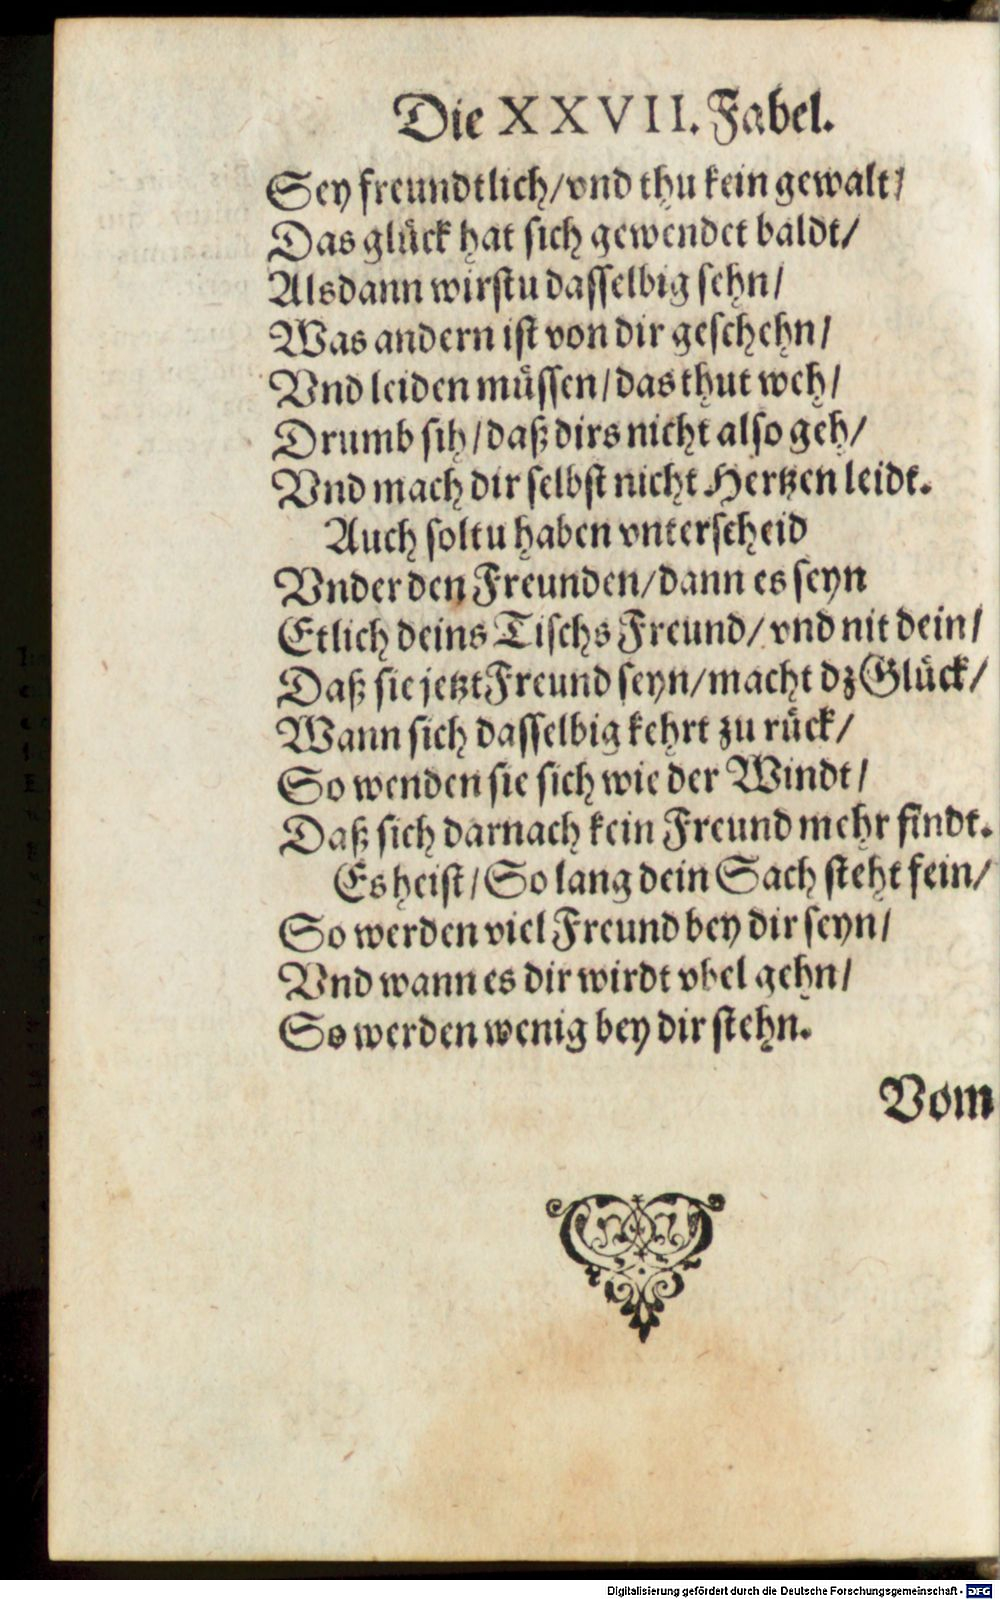 Die XXVII. Fabel.
Sey freundtlich/vnd thu kein gewalt/
Das glück hat sich gewendet baldt/
Alsdann wirstu dasselbig sehn/
Was andern ist von dir geschehn/
Vnd leiden müssen/das thut weh/
Drumb sih/daß dirs nicht also geh/
Vnd mach dir selbst nicht Hertzen leidt.
Auch soltu haben vnterscheid
Vnder den Freunden/dann es seyn
Etlich deins Tischs Freund/vnd nit dein/
Daß sie jetzt Freund seyn/macht dz Glück/
Wann sich dasselbig kehrt zu rück/
So wenden sie sich wie der Windt/
Daß sich darnach kein Freund mehr findt.
Es heist/So lang dein Sach steht fein/
So werden viel Freund bey dir seyn/
Vnd wann es dir wirdt vbel gehn/
So werden wenig bey dir stehn.
Vom
Digitalisierung gefördert durch die Deutsche Forschungsgemeinschaft - DFG